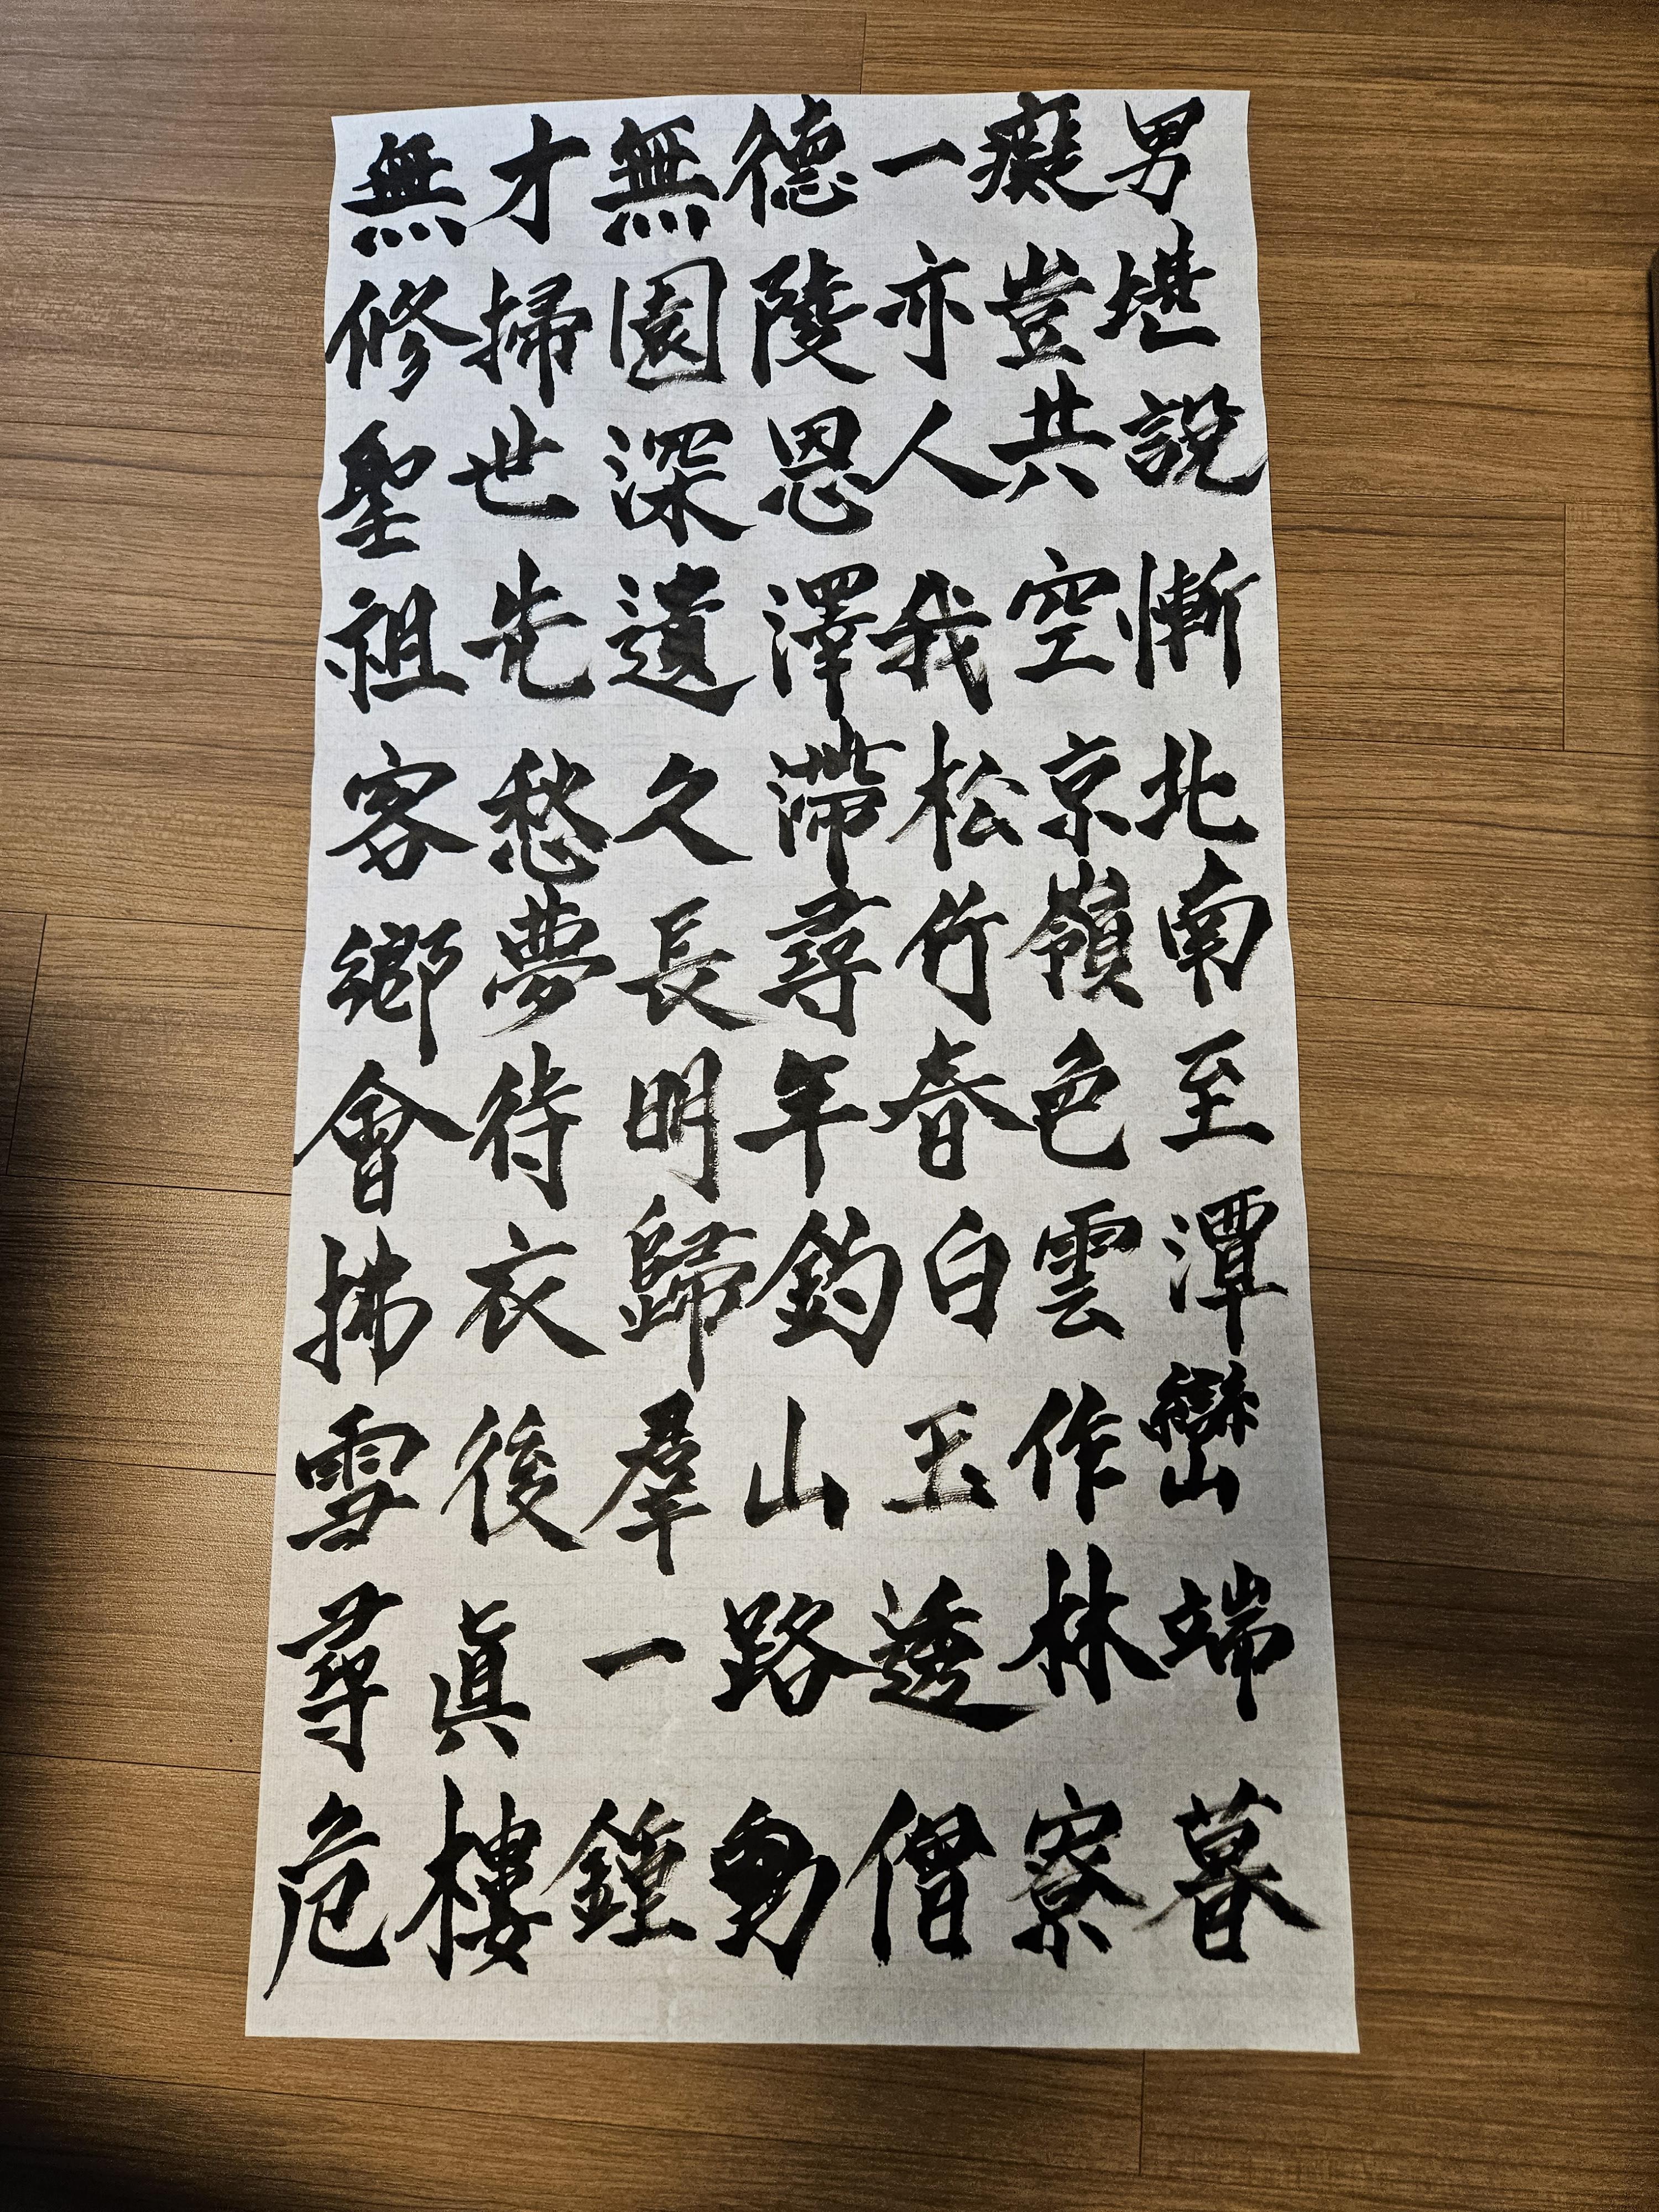 無才無德一癡男
修掃園陵亦豈堪
聖世深恩人共說
祖先遺澤我空慚
客愁久滯松京北
鄉夢長尋竹嶺南
會待明年春色至
拂衣歸釣白雲潭
雪後羣山玉作巒
尋眞一路透林端
危樓鍾動僧寮暮